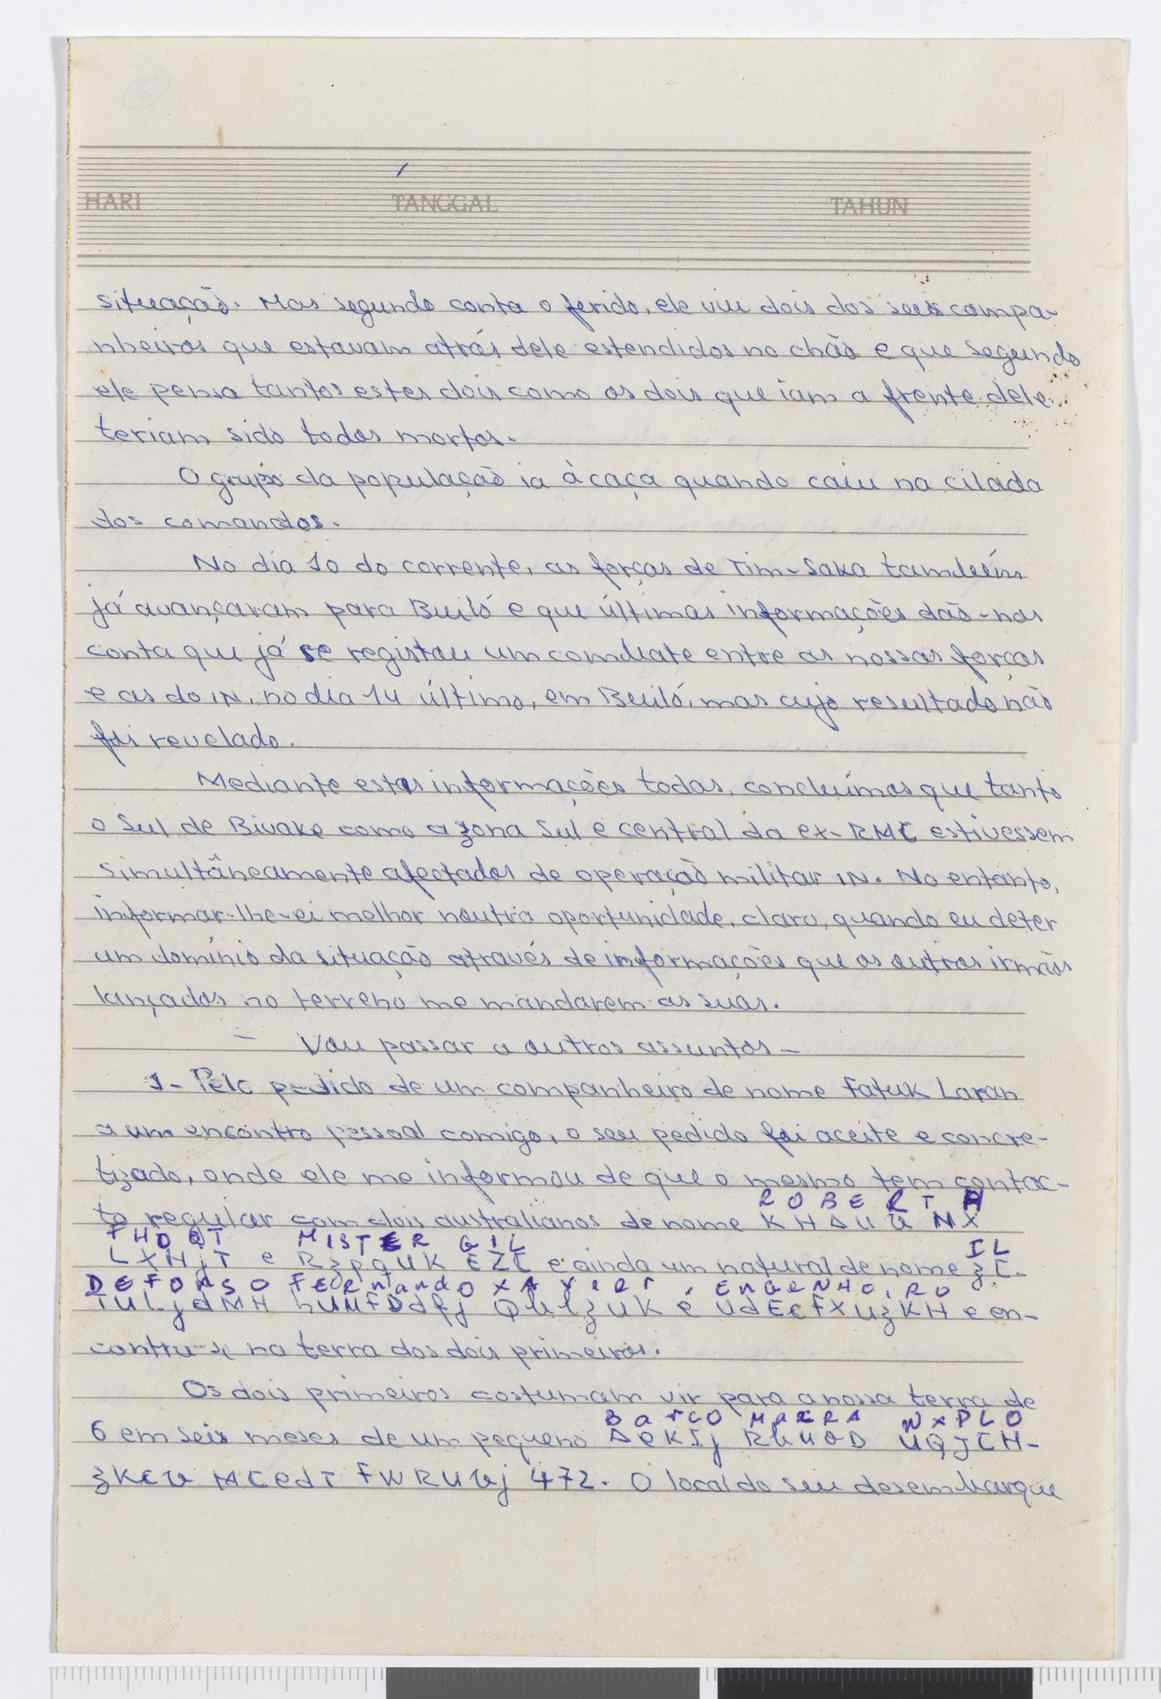 HARI TANGGAL TAHUN
situação. Mas segundo conta o ferido, ele viu dois dos seus compa-
nheiros que estavam atrás dele estendidos no chão e que segundo
ele pensa tantos estes dois como os dois que iam a frente dele
teriam sido todos mortos.
O grupo da população ia à caça quando caiu na cilada
dos comandos.
No dia 10 do corrente, as forças de Tim-Saka também
já avançaram para Builó e que últimas informações dão-nos
conta que já se registou um combate entre as nossas forças
e as do IN, no dia 14 último, em Builó, mas cujo resultado não
foi revelado.
Mediante estas informações todas, concluímos que tanto
o Sul de Bivake como a zona Sul e central da ex-RMC estivessem
simultâneamente afectados de operação militar IN. No entanto,
informar-lhe-ei melhor noutra oportunidade, claro, quando eu deter
um domínio da situação através de informações que os outros irmãos
lançados no terreno me mandarem as suas.
- Vou passar a outros assuntos -
1- Pelo pedido de um companheiro de nome Fatuk Laran
a um encontro pessoal comigo, o seu pedido foi aceite e concre-
tizado, onde ele me informou de que o mesmo tem contac-
ROBERT H
to regular com dois australianos de nome
MISTER GIL IL
e ainda um natural de nome
DEFONSO FERnandO ENGENHOIRO
e en-
contra-se na terra dos dois primeiros.
Os dois primeiros costumam vir para a nossa terra de
BarCO
6 em seis meses de um pequeno
472. O local do seu desembarque